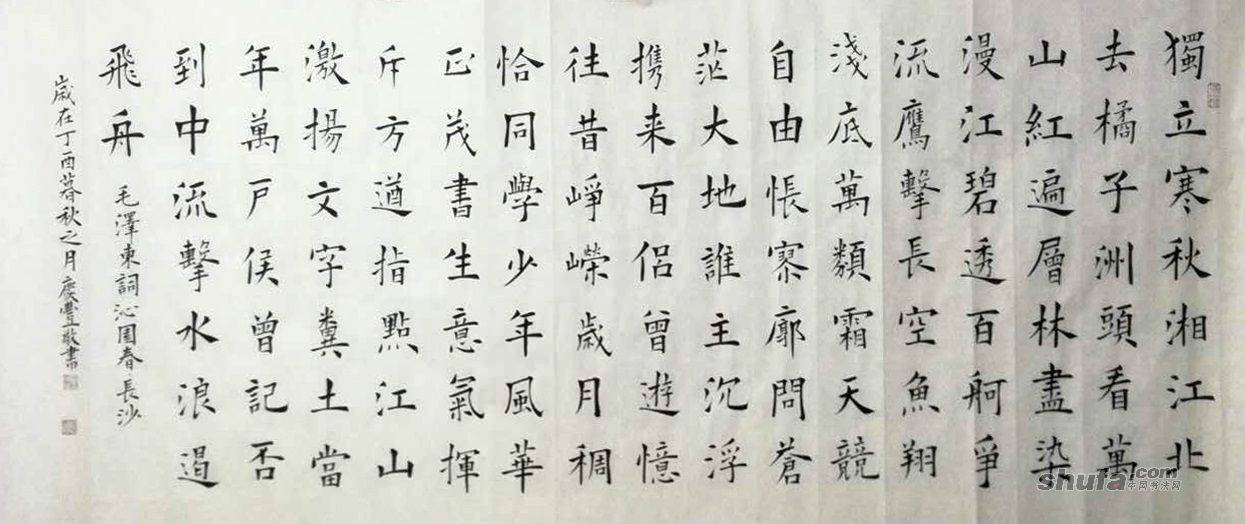 獨立寒秋湘江北
去橘子洲頭看萬
山紅遍層林盡染
漫江碧透百舸爭
流鷹擊長空魚翔
淺底萬類霜天競
自由悵寥廓問蒼
茫大地誰主沉浮
携来百侶曾遊憶
往昔崢嶸歲月稠
恰同學少年風華
正茂書生意氣揮
斥方遒指點江山
激揚文字糞土當
年萬戶侯曾記否
到中流擊水浪遏
飛舟
毛澤東詞沁園春長沙
歲在丁酉暮秋之月慶豐敬書
shufa.com
中国书法网